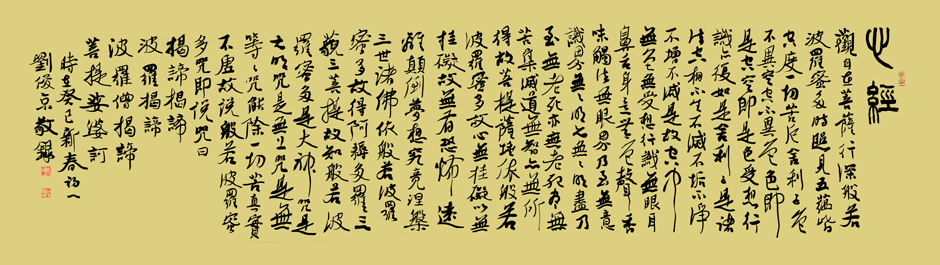 心經
觀自在菩薩行深般若
波羅蜜多時照見五蘊皆
空度一切苦厄舍利子色
不異空空不異色色即
是空空即是色受想行
識亦復如是舍利子是諸
法空相不生不滅不垢不淨
不增不減是故空中
無色無受想行識無眼耳
鼻舌身意無色聲香
味觸法無眼界乃至無意
識界無無明亦無無明盡乃
至無老死亦無老死盡無
苦集滅道無智亦無所
得故菩提薩埵依般若
波羅蜜多故心無挂礙以無
挂礙故無有恐怖遠
離顛倒夢想究竟涅槃
三世諸佛依般若波羅
蜜多故得阿耨多羅三
藐三菩提故知般若波
羅蜜多是大神咒是
大明咒是無上咒是無
等等咒能除一切苦真實
不虛故說般若波羅蜜
多咒即說咒曰
揭諦揭諦
波羅揭諦
波羅僧揭諦
菩提娑婆訶
時在癸巳新春初一
劉俊京敬錄